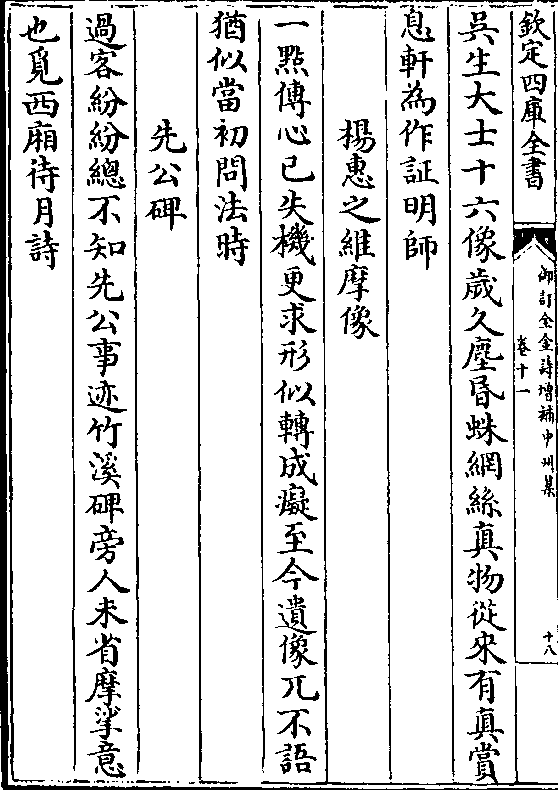 欽定四庫全書
御訂全金詩增補中州集
卷十一
十八
吳生大士十六像歲久塵昏蛛網絲真物從來有真賞
息軒為作証明師
楊惠之維摩像
一㸃傳心已失機更求形似轉成癡至今遺像兀不語
猶似當初問法時
先公碑
過客紛紛總不知先公事迹竹溪碑旁人未省摩挲意
也覓西廂待月詩